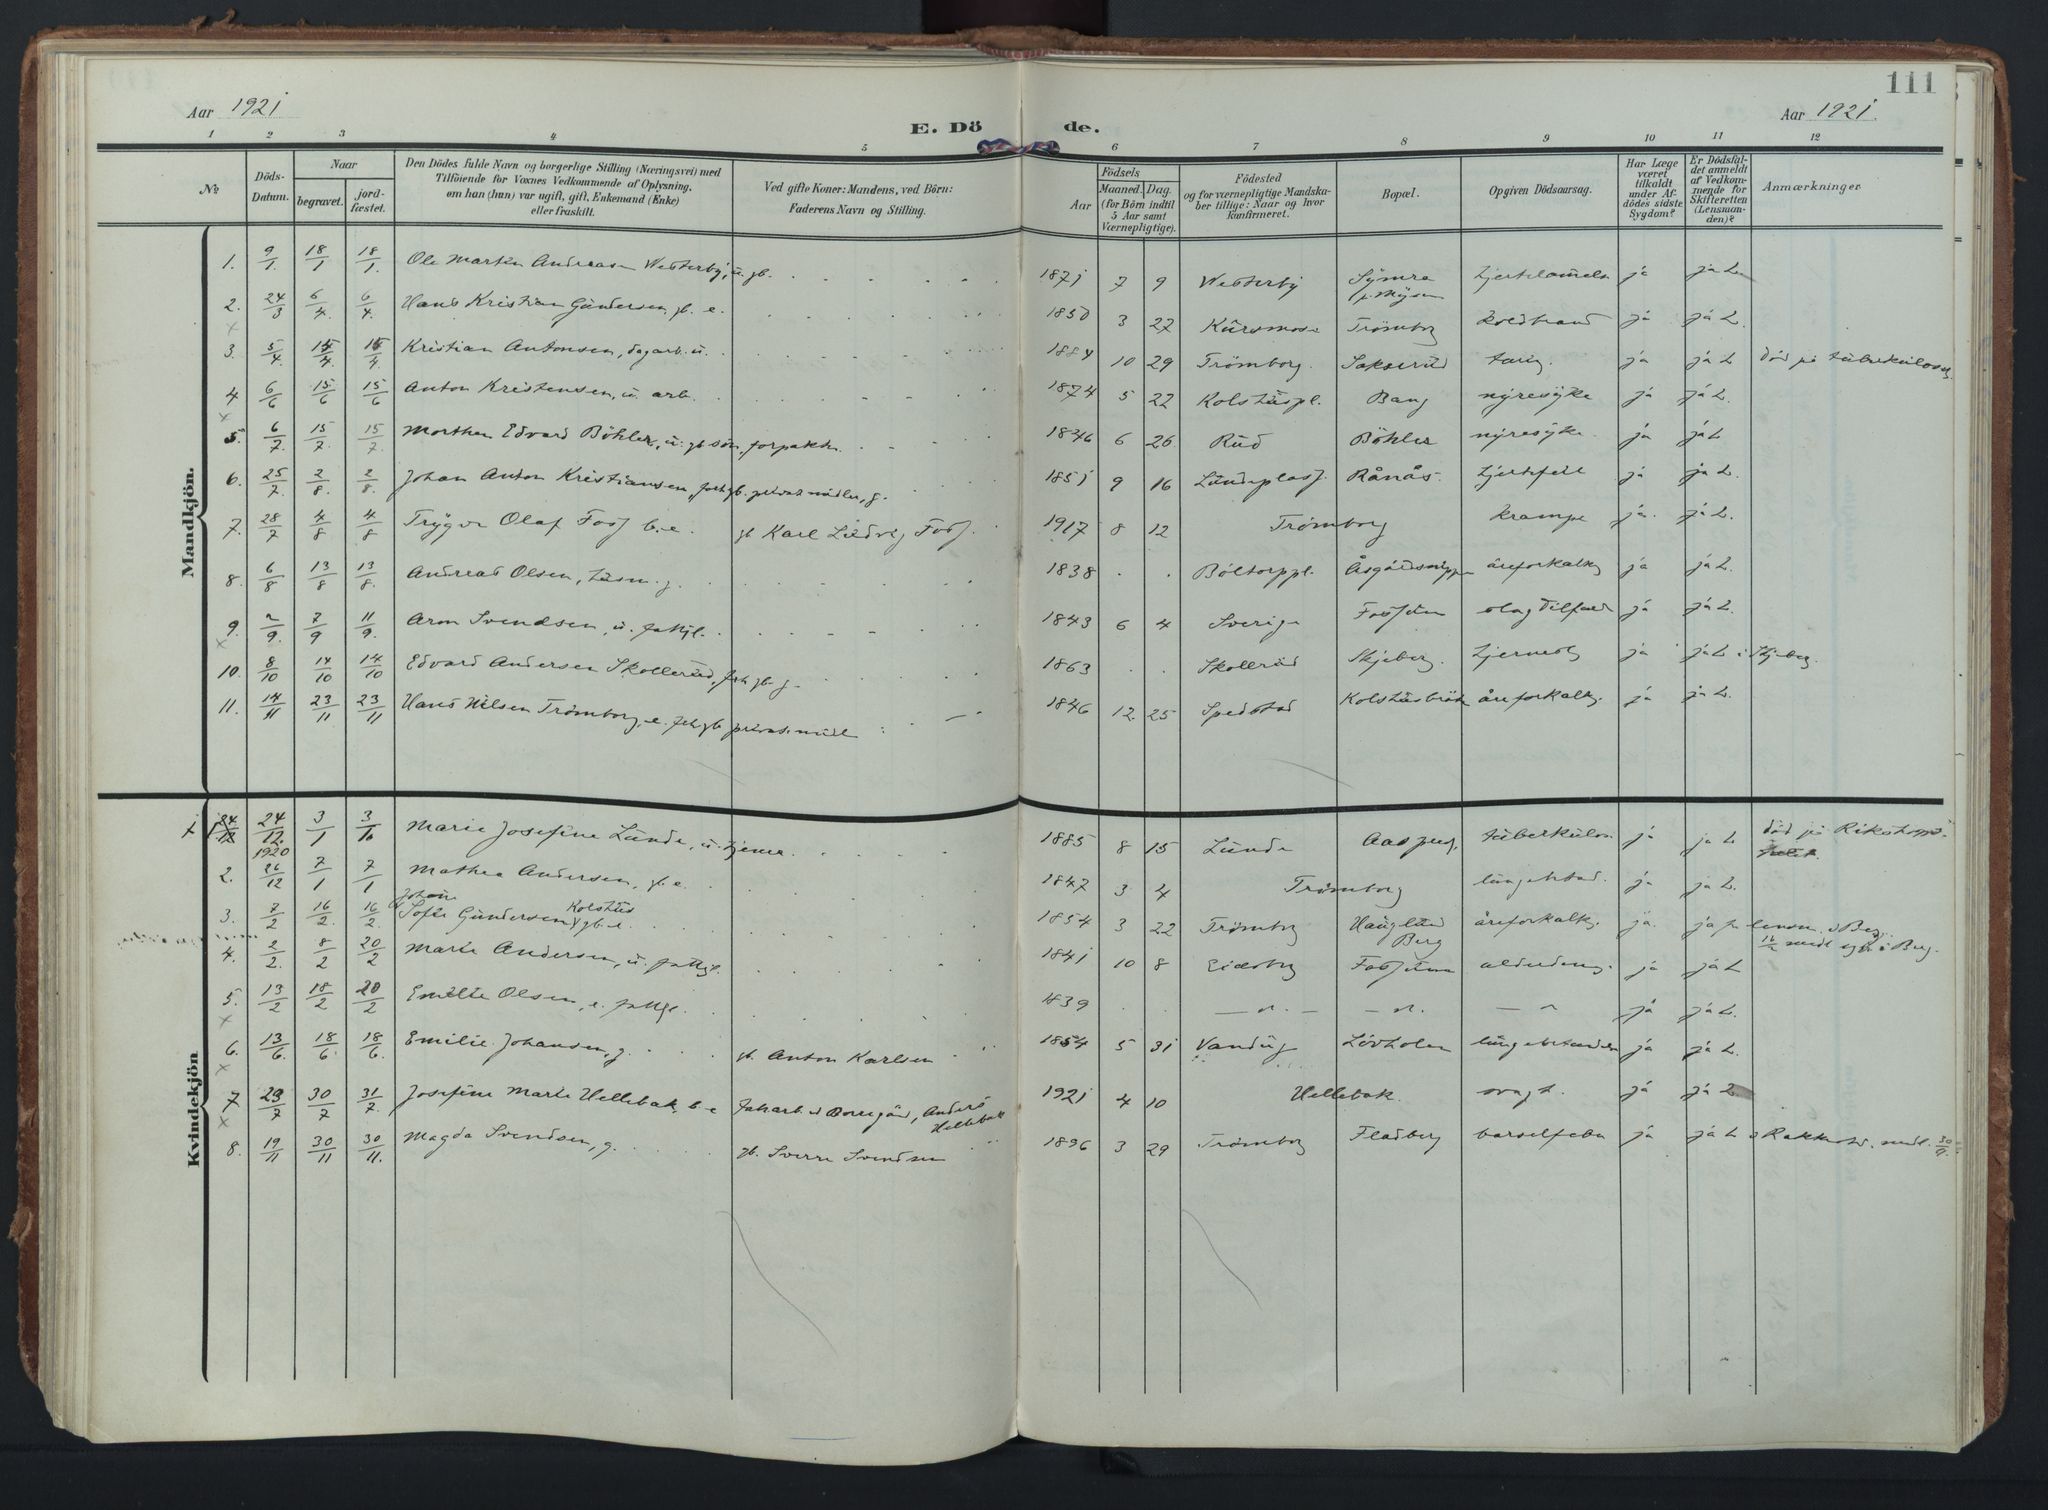 111
Aar 1921
E. Döde.
Aar 1921.
1 2 3 4 5 6 7 8 9 10 11 12
No
Döds-Datum.
Naar
begravet.
jordfæstet.
Den Dödes fulde Navn og borgerlige Stilling (Næringsvei) med
Tilföiende for Voxnes Vedkommende af Oplysning,
om han (hun) var ugift, gift, Enkemand (Enke)
eller fraskilt.
Ved gifte Koner: Mandens, ved Börn:
Faderens Navn og Stilling.
Aar
Födsels
Maaned. Dag.
(for Börn indtil
5 Aar samt
Værnepligtige).
Födested
og for værnepligtige Mandskaber tillige: Naar og hvor
konfirmeret.
Bopæl.
Opgiven Dödsaarsag.
Har Læge
været
tilkaldt
under Afdödes sidste
Sygdom?
Er Dödsfaldet anmeldt
af Vedkommende for
Skifteretten
(Lensmanden)?
Anmærkninger
Mandkjön.
1. 9/1. 18/1 18/1. Ole Martin Andreasen Westerby, u. gb. 1871 7 9 Westerby Symra p. Mysen hjertelammelse ja ja L.
2. 24/3 6/4. 6/4. Hans Kristian Gundersen, gb. e. 1850 3 27 Kursmose Trömborg koldbrand ja ja L.
3. 5/4. 15/4. 15/4. Kristian Antonsen, dagarb. u. 1884 10 29 Trömborg. Sakserud tæring. ja ja L död på tuberkulosehj.
4 6/6 15/6 15/6 Anton Kristensen, u. arb. 1874 5 22 Kolshuspl. Bang nyresyke ja ja L.
5. 6/7. 15/7. 15/7. Morthen Edvard Böhler, u. gb sön, forpakter 1846 6 26 Rud Böhler nyresyke. ja ja L
6. 25/7. 2/8. 2/8. Johan Anton Kristiansen, forh. gb. privat midler, g. 1851 9 16 Lundeplass Rånås. hjertefeil ja ja L
7. 28/7 4/8 4/8 Trygve Olaf Foss b. e. gb Karl Ludvig Foss. 1917 8 12 Trömborg krampe ja. ja L.
8. 6/8 13/8 13/8. Andreas Olsen, husm. g. 1838 Böltorppl. åreforkalkn ja ja L.
9. 2/9. 7/9 11/9. Aron Svendsen, u. fattigl. 1843 6 4 Sverige Fosstun slagtilfæld ja ja L.
10. 8/10 14/10 14/10 Edvard Andersen Skollerud, forh. gb. g. 1863 Skollerud Skjeberg. hjerneslg ja ja L i Skjeberg.
11. 14/11 23/11 23/11 Hans Nilsen Trömborg, e. forh. gb privat. midl 1846 12. 25 Spedstad Kolshusbråt åreforkalkn. ja ja L.
Kvindekjön
1 24/12. 1920 3/1 3/1 Marie Josefine Lunde, u. tjener. 1885 8 15 Lunde tuberkulose ja ja L död på Rikshospi-
2. 26/12 7/1 7/1 Mathea Andersen, gb. e. 1847 3 4 Trömborg lungebetænd. ja ja L.
3. 7/2 16/2. 16/2. Johanne Sofie Gundersen Kolshus gb. e. 1854 3 22 Trömborg Berg åreforkalkn. ja. ja for lensm. i Berg.
4. 2/2. 8/2 20/2 Marie Andersen, u. fattigl. 1841 10 8 Eidsberg Fosstun alderdoms. ja ja L 16/2 meldt ogs i Berg.
5. 13/2 18/2 20/2 Emilie Olsen, e. fattigl. 1839 — n. — — n. — — n ja ja L.
6. 13/6. 18/6. 18/6. Emilie Johansen, g. gb. Anton Karlsen 1854 5 31 Vandug Lövholen lungebetændelse ja ja L.
7 29/7 30/7 31/7. Josefine Marie Hellebæk, b. e fabarb. v Borregård, Anders Hellebæk 1921 4 10 Hellebæk. svagh. ja ja L
8. 19/11 30/11 30/11. Magda Svendsen, g. gb. Sverre Svendsen 1896 3 29 Trömborg Fladberg barselfeber ja ja L i Rakkestad. meldt. 30/11.